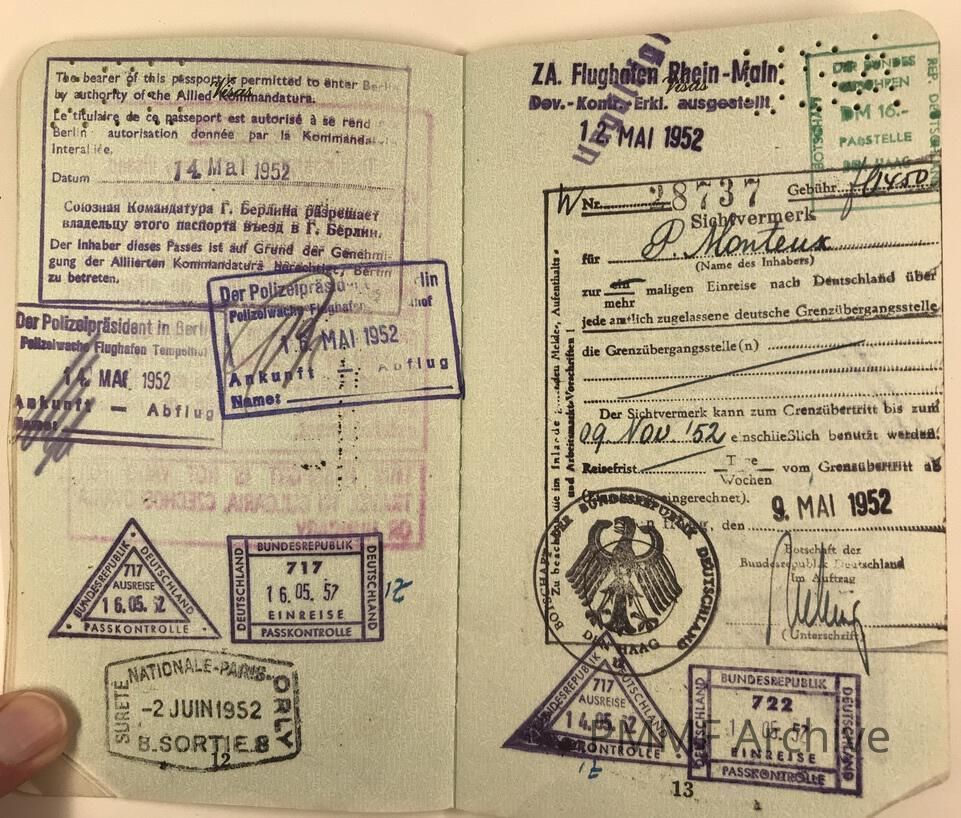 The bearer of this passport is permitted to enter Berlin
by authority of the Allied Kommandatura.
Visas
Le titulaire de ce passeport est autorisé à se rend
Berlin autorisation donnée par la Kommanda
Interalliée.
Datum 14 Mai 1952
Союзная Командатура Г. Берлина разрешает
владельцу этого паспорта въезд в Г. Берлин.
Der Inhaber dieses Passes ist auf Grund der Genehmi-
gung der Alliierten Kommandatura berechtigt, Berlin
zu betreten.
Der Polizeipräsident in Berli
Polizeiwache Flughafen Tempelho
14. MAI 1952
Ankunft — Abflug
Name:
Der Polizeipräsid lin
Polizeiwache Flughafen hof
MAI 1952
Ankunft — Abflug
Name:
BUNDESREPUBLIK DEUTSCHLAND
717
AUSREISE
16.05.52
PASSKONTROLLE
BUNDESREPUBLIK
DEUTSCHLAND
717
16.05.52
EINREISE
DEUTSCHLAND
PASSKONTROLLE
SURETÉ NATIONALE-PARIS-ORLY
-2 JUIN 1952
B.SORTIE.8
12
ZA. Flughafen Rhein-Main
Visas
Dev.-Kontr. Erkl. ausgestellt
12. MAI 1952
DER BUNDES
BOTSCHAFT
REP. DEUTSCHLAND
DM 16.-
PAßSTELLE
DEN HAAG
W Nr. 28737 Gebühr
Sichtvermerk
für P. Monteux
(Name des Inhabers)
zur ein maligen Einreise nach Deutschland über
mehr
jede amtlich zugelassene deutsche Grenzübergangsstelle
die Grenzübergangsstelle(n)
Der Sichtvermerk kann zum Grenzübertritt bis zum
09. Nov '52 einschließlich benutzt werden.
Reisefrist Tage vom Grenzübertritt ab
Wochen
eingerechnet).
Haag, den 9. MAI 1952
Botschaft der
Bundesrepublik Deutschland
Im Auftrag
(Unterschrift)
Zu beachten: die im Inlande Melde-, Aufenthalts-
und Arbeitsmarkt-Vorschriften!
BOTSCHAFT DER BUNDESREPUBLIK DEUTSCHLAND
DEN HAAG
BUNDESREPUBLIK DEUTSCHLAND
717
AUSREISE
14.05.52
PASSKONTROLLE
BUNDESREPUBLIK
DEUTSCHLAND
722
05.52
EINREISE
DEUTSCHLAND
PASSKONTROLLE
PMMF Archive
13